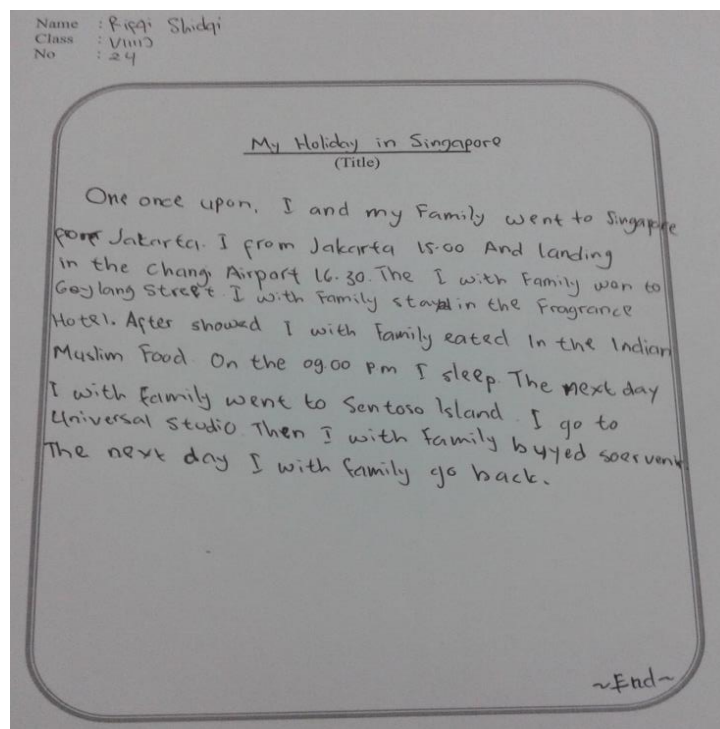 Name : Rifqi Shidqi
Class : VIIID
No : 24
My Holiday in Singapore
(Title)
One once upon, I and my Family went to Singapore
from Jakarta. I from Jakarta 15.00 And landing
in the Changi Airport 16.30. The I with Family won to
Geylang Street. I with Family stayed in the Fragrance
Hotel. After showed I with Family eated In the Indian
Muslim Food. On the 09.00 pm I sleep. The next day
I with Family went to Sentoso Island. I go to
Universal Studio. Then I with Family byyed
The next day I with family go back.
~End~